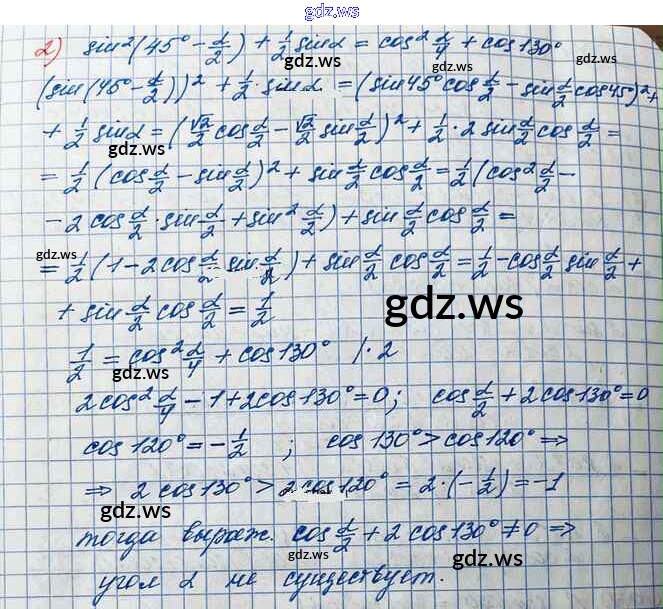 gdz.ws
2) sin²(45° - α/2) + 1/2 sinα = cos² α/4 + cos130°
(sin(45° - α/2))² + 1/2 · sinα = (sin45° cos α/2 - sin α/2 cos45°)² +
+ 1/2 sinα = (√2/2 cos α/2 - √2/2 sin α/2)² + 1/2 · 2 sin α/2 cos α/2 =
gdz.ws
= 1/2 (cos α/2 - sin α/2)² + sin α/2 cos α/2 = 1/2 (cos² α/2 -
- 2 cos α/2 · sin α/2 + sin² α/2) + sin α/2 cos α/2 =
gdz.ws
gdz.ws
= 1/2 (1 - 2 cos α/2 sin α/2) + sin α/2 cos α/2 = 1/2 - cos α/2 sin α/2 +
+ sin α/2 cos α/2 = 1/2
gdz.ws
1/2 = cos² α/4 + cos130° | · 2
gdz.ws
2cos² α/4 - 1 + 2cos130° = 0; cos α/2 + 2cos130° = 0
cos120° = - 1/2 ; cos130° > cos120° ⇒
⇒ 2cos130° > 2cos120° = 2 · (- 1/2) = -1
gdz.ws
тогда выраж. cos α/2 + 2cos130° ≠ 0 ⇒
gdz.ws
gdz.ws
угол α не существует.